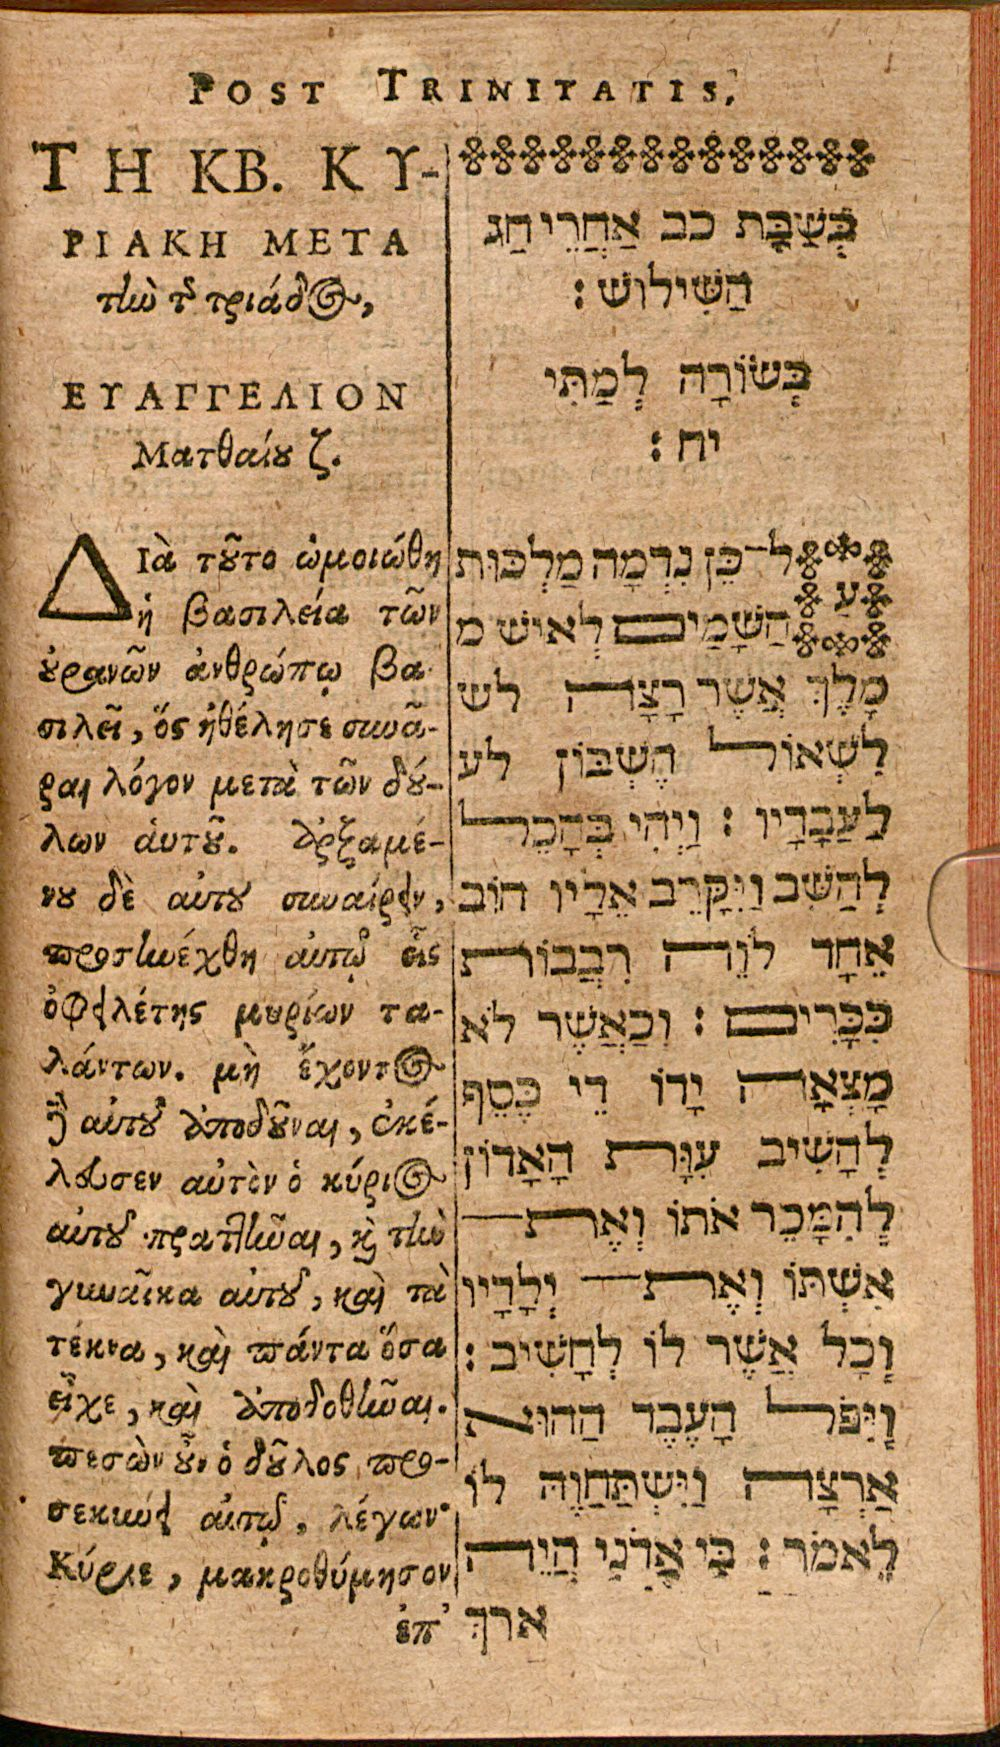 POST TRINITATIS.
ΤΗ ΚΒ. ΚΥ-
ΡΙΑΚΗ ΜΕΤΑ
τὴν τ͂ τριάδος,
ΕΥΑΓΓΕΛΙΟΝ
Ματθαίου ζ.
ΔΙὰ τοῦτο ὡμοιώθη
ἡ βασιλεία τῶν
οὐρανῶν ἀνθρώπῳ βα-
σιλεῖ, ὅς ἠθέλησε συνᾶ-
ραι λόγον μετὰ τῶν δού-
λων ἁυτοῦ. ἀρξαμέ-
νου δὲ αὐτου συναίρειν,
προσηνέχθη αὐτῷ εἷς
ὀφειλέτης μυρίων τα-
λάντων. μὴ ἔχοντος
δὲ αὐτοῦ ἀποδοῦναι, ἐκέ-
λευσεν αὐτὸν ὁ κύριος
αὐτοῦ πραθῆναι, καὶ τὴν
γυναῖκα αὐτοῦ, καὶ τὰ
τέκνα, καὶ πάντα ὅσα
εἶχε, καὶ ἀποδοθῆναι.
πεσὼν οὖν ὁ δοῦλος προ-
σεκυνει αὐτῷ, λέγων·
Κύριε, μακροθύμησον
ἐπ’
בְּשַׁבָּת כב אַחֲרֵי חַג
הַשִּׁילוֹשׁ׃
בְּשׂוֹרָה לְמַתִּי
יח׃
עַל־כֵּן נִדְמָה מַלְכוּת
הַשָּׁמַיִם לְאִישׁ מ
מֶלֶךְ אֲשֶׁר רָצָה לש
לִשְׁאוֹל הֶשְׁבּוֹן לע
לַעֲבָדָיו׃ וַיְהִי בְּהָכֵל
לְהַשִּׁב וַיִּקָּרֵב אֵלָיו חוֹב
אֶחָד לוֶֹה רִבֲבוֹת
כִּכָּרִים׃ וְכַאֲשֶׁר לֹא
מָצְאָה יָדוֹ דֵי כֶּסֶף
לְהָשִׁיב עִוָּת הָאָדוֹן
לְהִמָּכֵר אֹתוֹ וְאֶת־
אִשְׁתּוֹ וְאֶת־ יְלָדָיו
וְכָל אֲשֶׁר לוֹ לְחָשִׁיב׃
וַיִּפֹּל הָעֶבֶד הַהוּא
אַרְצָה וַיִּשְׁתַּחֲוֶה לוֹ
לֵאמֹר׃ כִּי אֲדֹנָי הֲיֵה
אַרךְ